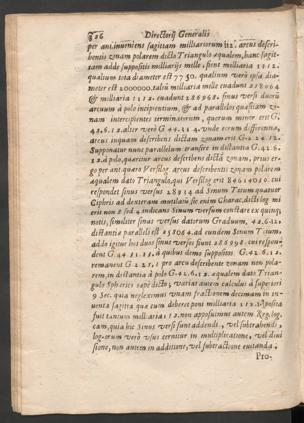 Directorij Generalis
per ant. inueniens sagittam milliariorum 112. arcus descri-
bentis zonam polarem dicto Triangulo æqualem, hanc sagit-
tam adde suppositis milliarijs mille, sient milliaria 1112.
qualium tota diameter est 7750. qualium verò ipsa dia-
meter est 2000000. talia milliaria mille euadunt 258064
& milliaria 1112. euadunt 286968. sinus versi duorũ
arcuum à polo incipientium, & ad parallelos quæsitam zo-
nam intercipientes terminatorum, quorum minor erit G.
42.6.12. alter verò G. 44.31. vnde eorum differentia,
arcus inquam describens dictam zonam erit G. 2. 24. 12.
Supponatur nunc parallelum transire in distantia G. 42.6.
12. à polo, quæretur arcus describens dictã zonam, prius er-
go per ant. quæro Versilog. arcus describentis zonam polarem
æqualem dato Triangulo, qui Versilog. erit cui
respondet sinus versus 28914 ad Sinum Totum quatuor
Ciphris ad dexteram mutilatũ sic enim Charac. dicti log. mi
erit non 8 sed 4 indicans Sinum versum constare ex quinq;
notis, similiter sinus versus datorum Graduum, 42.6.12.
distantiæ paralleli est 258064. ad eundem Sinum Totum,
addo igitur hos duos sinus versos sunt 286978. cui respon-
dent G. 44. 31. 15. à quibus demo suppositis G. 42. 6. 12.
remanent G. 2. 25. 3. pro arcu describente zonam non pola-
rem, in distantia à polo G. 42. 6. 12. æqualem dato Trian-
gulo Sphærico sæpe dicto; variat autem calculus à superiori
9 Sec. quia negleximus vnam fractionem decimam in in-
uenta sagitta quæ cum deberet poni milliaria posita
fuit tantum milliaria 112. non apposuimus autem Reg. log.
cam, quia hic Sinus versi sunt addendi, vel subtrahendi,
log-orum verò vsus cernitur in multiplicatione, vel diui
sione, non autem in additione, vel subtractione euitanda.
Pro-